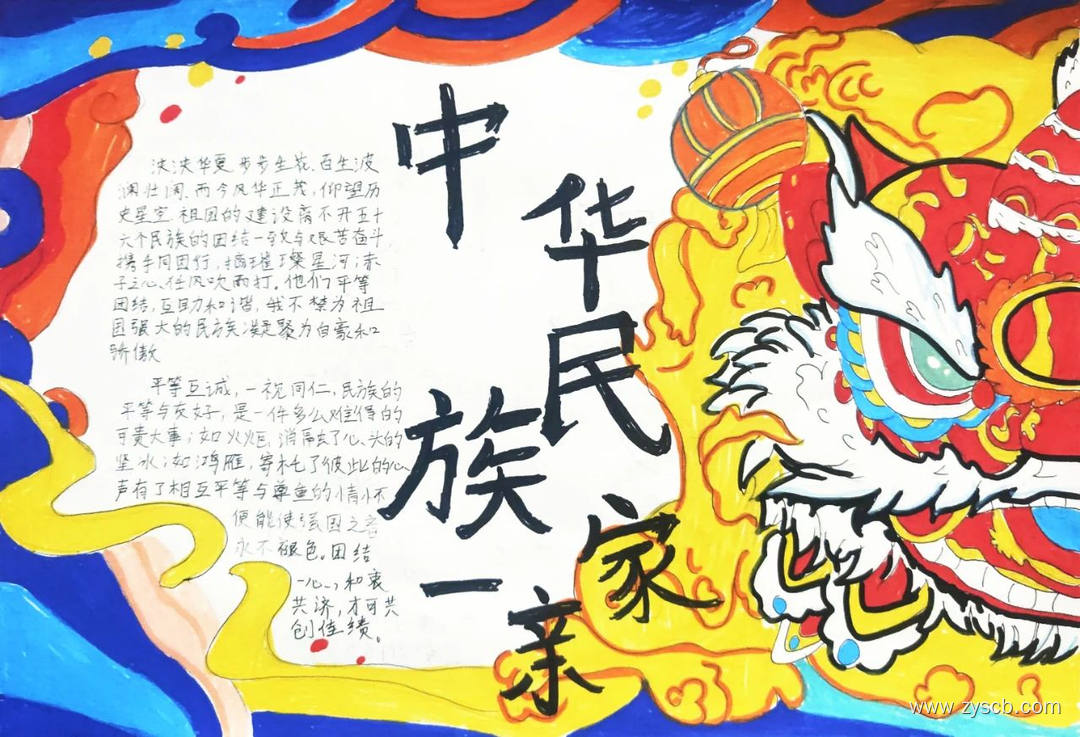 中
华
民
族
一
家
亲
泱泱华夏步步生花、百生波
澜壮阔、而今风华正茂,仰望历
史星空 祖国的建设离不开五十
六个民族的团结一致与艰苦奋斗,
携手同团行,摘璀璨星河;赤
子之心、任风吹雨打。他们平等
团结,互助和谐,我不禁为祖
国强大的民族凝聚为自豪和
骄傲
平等互诚,一视同仁,民族的
平等与友好,是一件多么难得的
可贵大事;如火炬,消融了心头的
坚冰;如鸿雁,寄托了彼此的心
声有了相互平等与尊重的情怀
便能使强国之音
永不褪色。团结
一心、和衷
共济,才可共
创佳绩。
www.zyscb.com